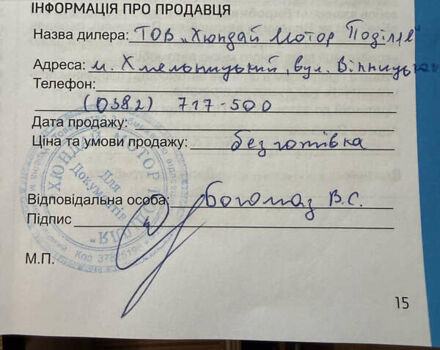 ІНФОРМАЦІЯ ПРО ПРОДАВЦЯ
Назва дилера: ТОВ „Хюндай Мотор Поділля"
Адреса: м. Хмельницький, вул. Вінницьк
Телефон:
(0382) 717-500
Дата продажу:
Ціна та умови продажу: без готівка
Відповідальна особа: Богомаз В.С.
Підпис
М.П.
Для
Документів
15